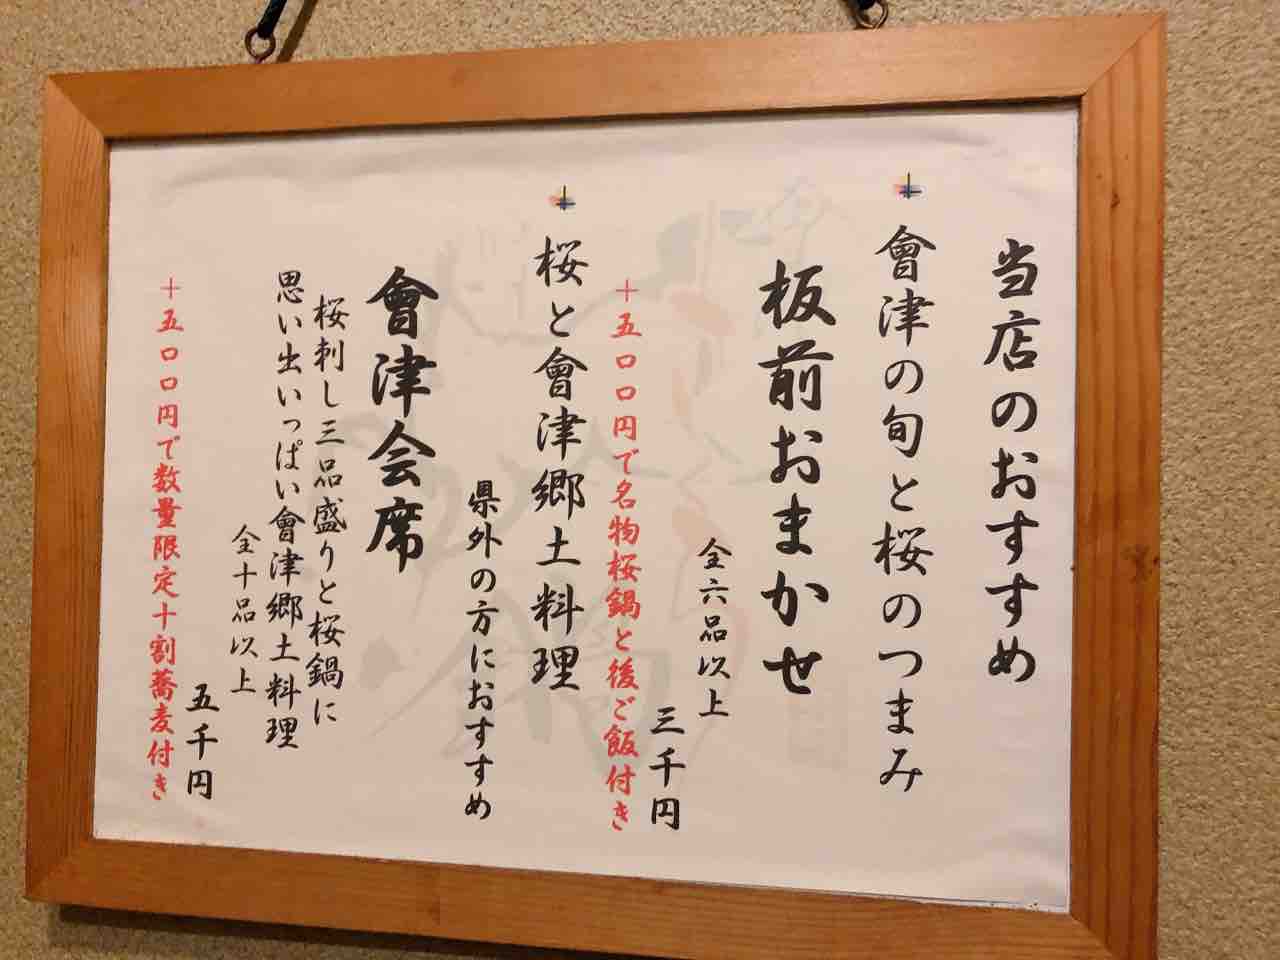 当店のおすすめ
會津の旬と桜のつまみ
板前おまかせ
全六品以上
三千円
＋五００円で名物桜鍋と後ご飯付き
桜と會津郷土料理
県外の方におすすめ
會津会席
桜刺し三品盛りと桜鍋に
思い出いっぱい會津郷土料理
全十品以上
五千円
＋五００円で数量限定十割蕎麦付き